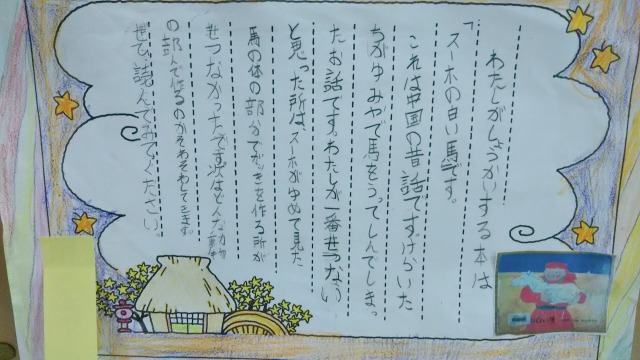 わたしがしょうかいする本は
「スーホの白い馬」です。
これは中国の昔話ですけらいた
ちがゆみやで馬をうってしんでしまっ
たお話です。わたしが一番せつない
と思った所は、スーホがゆめで見た
馬の体の部分でがっきを作る所が
せつなかったです次はどんな動物
の部分で作るのかそわそわしてきます。
ぜひ、読んでみてください。